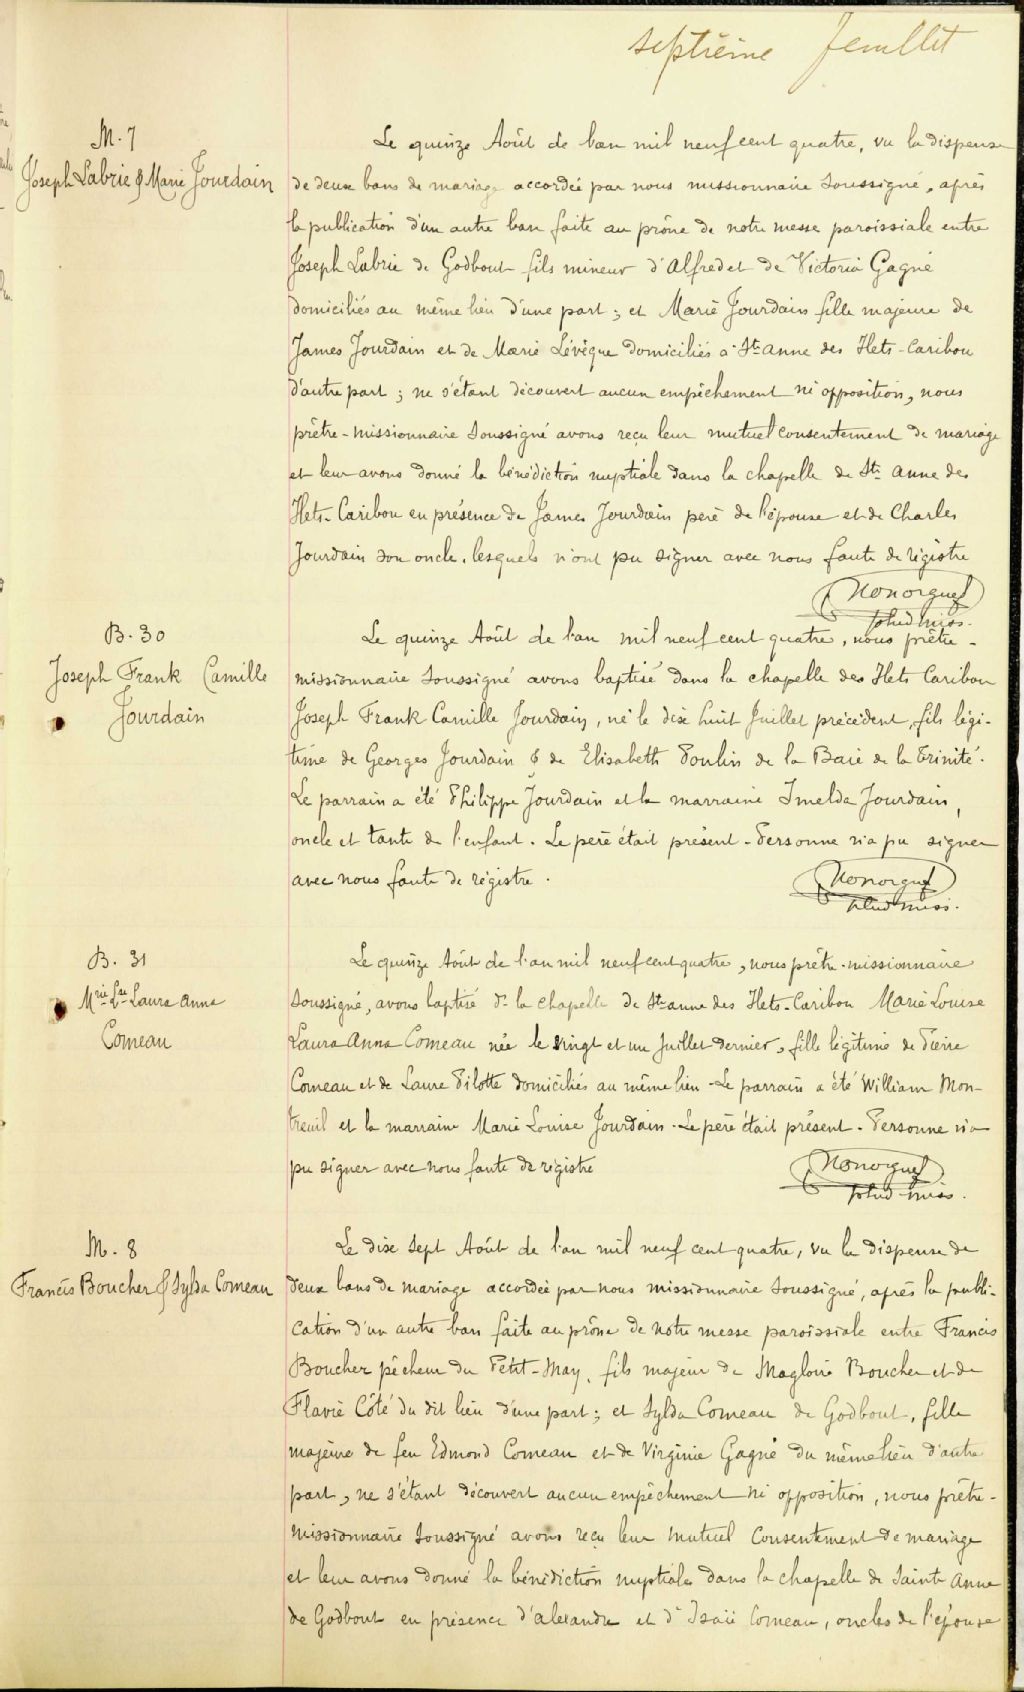 septième feuillet
M. 7
Joseph Labrie & Marie Jourdain
Le quinze Août de l'an mil neuf cent quatre, vu la dispense
de deux bans de mariage accordée par nous missionnaire soussigné, après
la publication d'un autre ban faite au prône de notre messe paroissiale entre
Joseph Labrie de Godbout fils mineur d'Alfred et de Victoria Gagné
domiciliés au même lieu d'une part ; et Marie Jourdain fille majeure de
James Jourdain et de Marie Lévêque domiciliés à Ste anne des Ilets-Caribou
d'autre part ; ne s'étant découvert aucun empêchement ni opposition, nous
prêtre-missionnaire soussigné avons reçu leur mutuel consentement de mariage
et leur avons donné la bénédiction nuptiale dans la chapelle de Ste anne des
Ilets-Caribou en présence de James Jourdain père de l'épouse et de Charles
Jourdain son oncle. lesquels n'ont pu signer avec nous faute de régistre
ptre miss.
B. 30
Joseph Frank Camille
Jourdain
Le quinze Août de l'an mil neuf cent quatre, nous prêtre-
missionnaire soussigné avons baptisé dans la chapelle des Ilets Caribou
Joseph Frank Camille Jourdain, né le dix huit Juillet précédent, fils légi-
time de Georges Jourdain & de Elisabeth Poulin de la Baie de la Trinité.
Le parrain a été Philippe Jourdain et la marraine Imelda Jourdain,
oncle et tante de l'enfant. Le père était présent - Personne n'a pu signer
avec nous faute de régistre.
miss.
B. 31
Mrie Lse Laura Anna
Comeau
Le quinze Août de l'an mil neuf cent quatre, nous prêtre-missionnaire
soussigné, avons baptisé ds la chapelle de Ste anne des Ilets-Caribou Marie Louise
Laura Anna Comeau née le vingt et un Juillet dernier, fille légitime de Pierre
Comeau et de Laure Pilotte domiciliés au même lieu - Le parrain a été William Mon-
treuil et la marraine Marie Louise Jourdain. Le père était présent - Personne n'a
pu signer avec nous faute de régistre
miss.
M. 8
Francis Boucher & Sylda Comeau
Le dix sept Août de l'an mil neuf cent quatre, vu la dispense de
deux bans de mariage accordée par nous missionnaire soussigné, après la publi-
cation d'un autre ban faite au prône de notre messe paroissiale entre Francis
Boucher pêcheur du Petit-May, fils majeur de Magloire Boucher et de
Flavie Côté du dit lieu d'une part ; et Sylda Comeau de Godbout, fille
majeure de feu Edmond Comeau et de Virginie Gagné du même lieu d'autre
part, ne s'étant découvert aucun empêchement ni opposition, nous prêtre-
missionnaire soussigné avons reçu leur mutuel consentement de mariage
et leur avons donné la bénédiction nuptiale dans la chapelle de Sainte Anne
de Godbout en présence d'alexandre et d'Isaïe Comeau, oncles de l'épouse